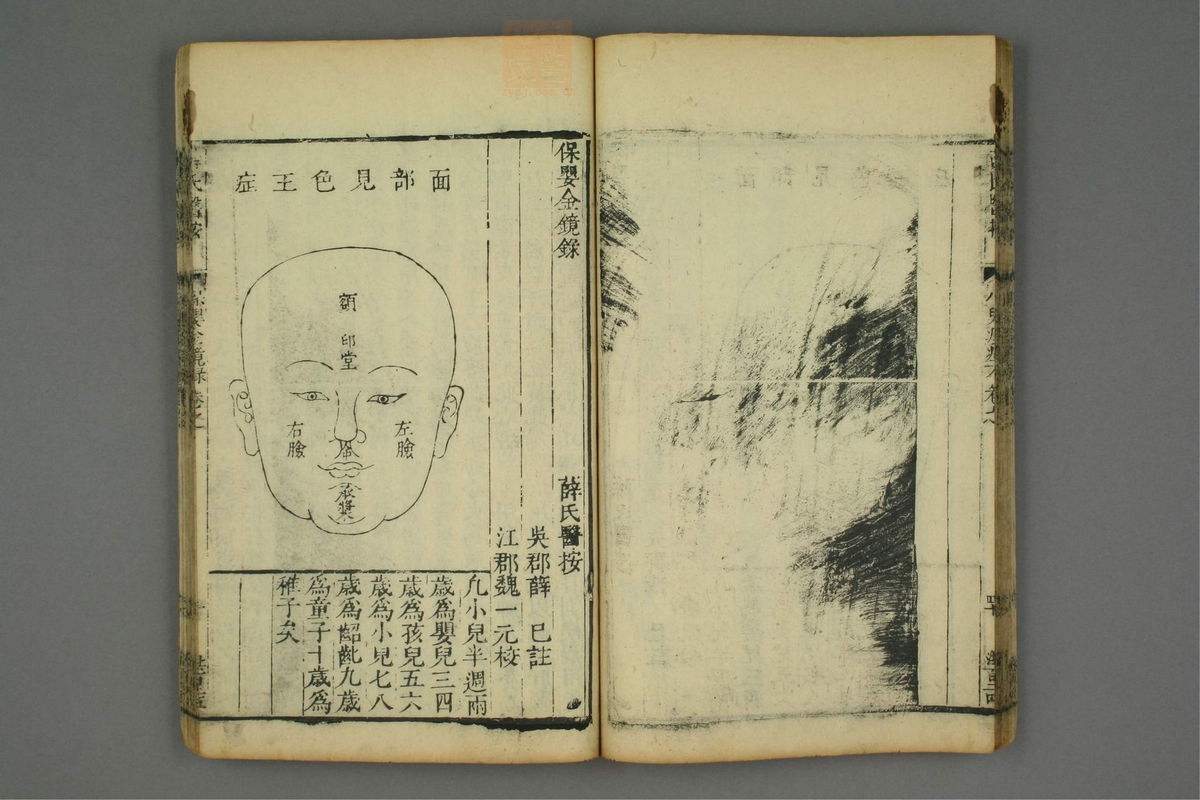 保嬰金鏡錄
薛氏醫按
吳郡薛 已註
江郡魏一元校
面部見色主症
額
印堂
左臉
右臉
承漿
凢小兒半週兩
歲為嬰兒三四
歲為孩兒五六
歲為小兒七八
歲為齠齔九歲
為童子十歲為
稚子矣